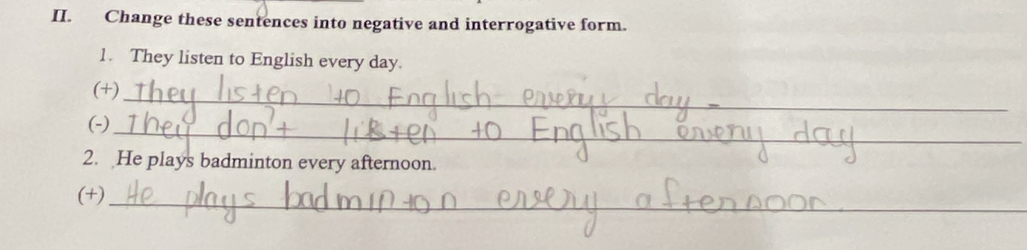 II. Change these sentences into negative and interrogative form.
1. They listen to English every day.
(+) They listen to English every day -
(-) They don't listen to English eveny day
2. He plays badminton every afternoon.
(+) He plays badminton every afternoon.